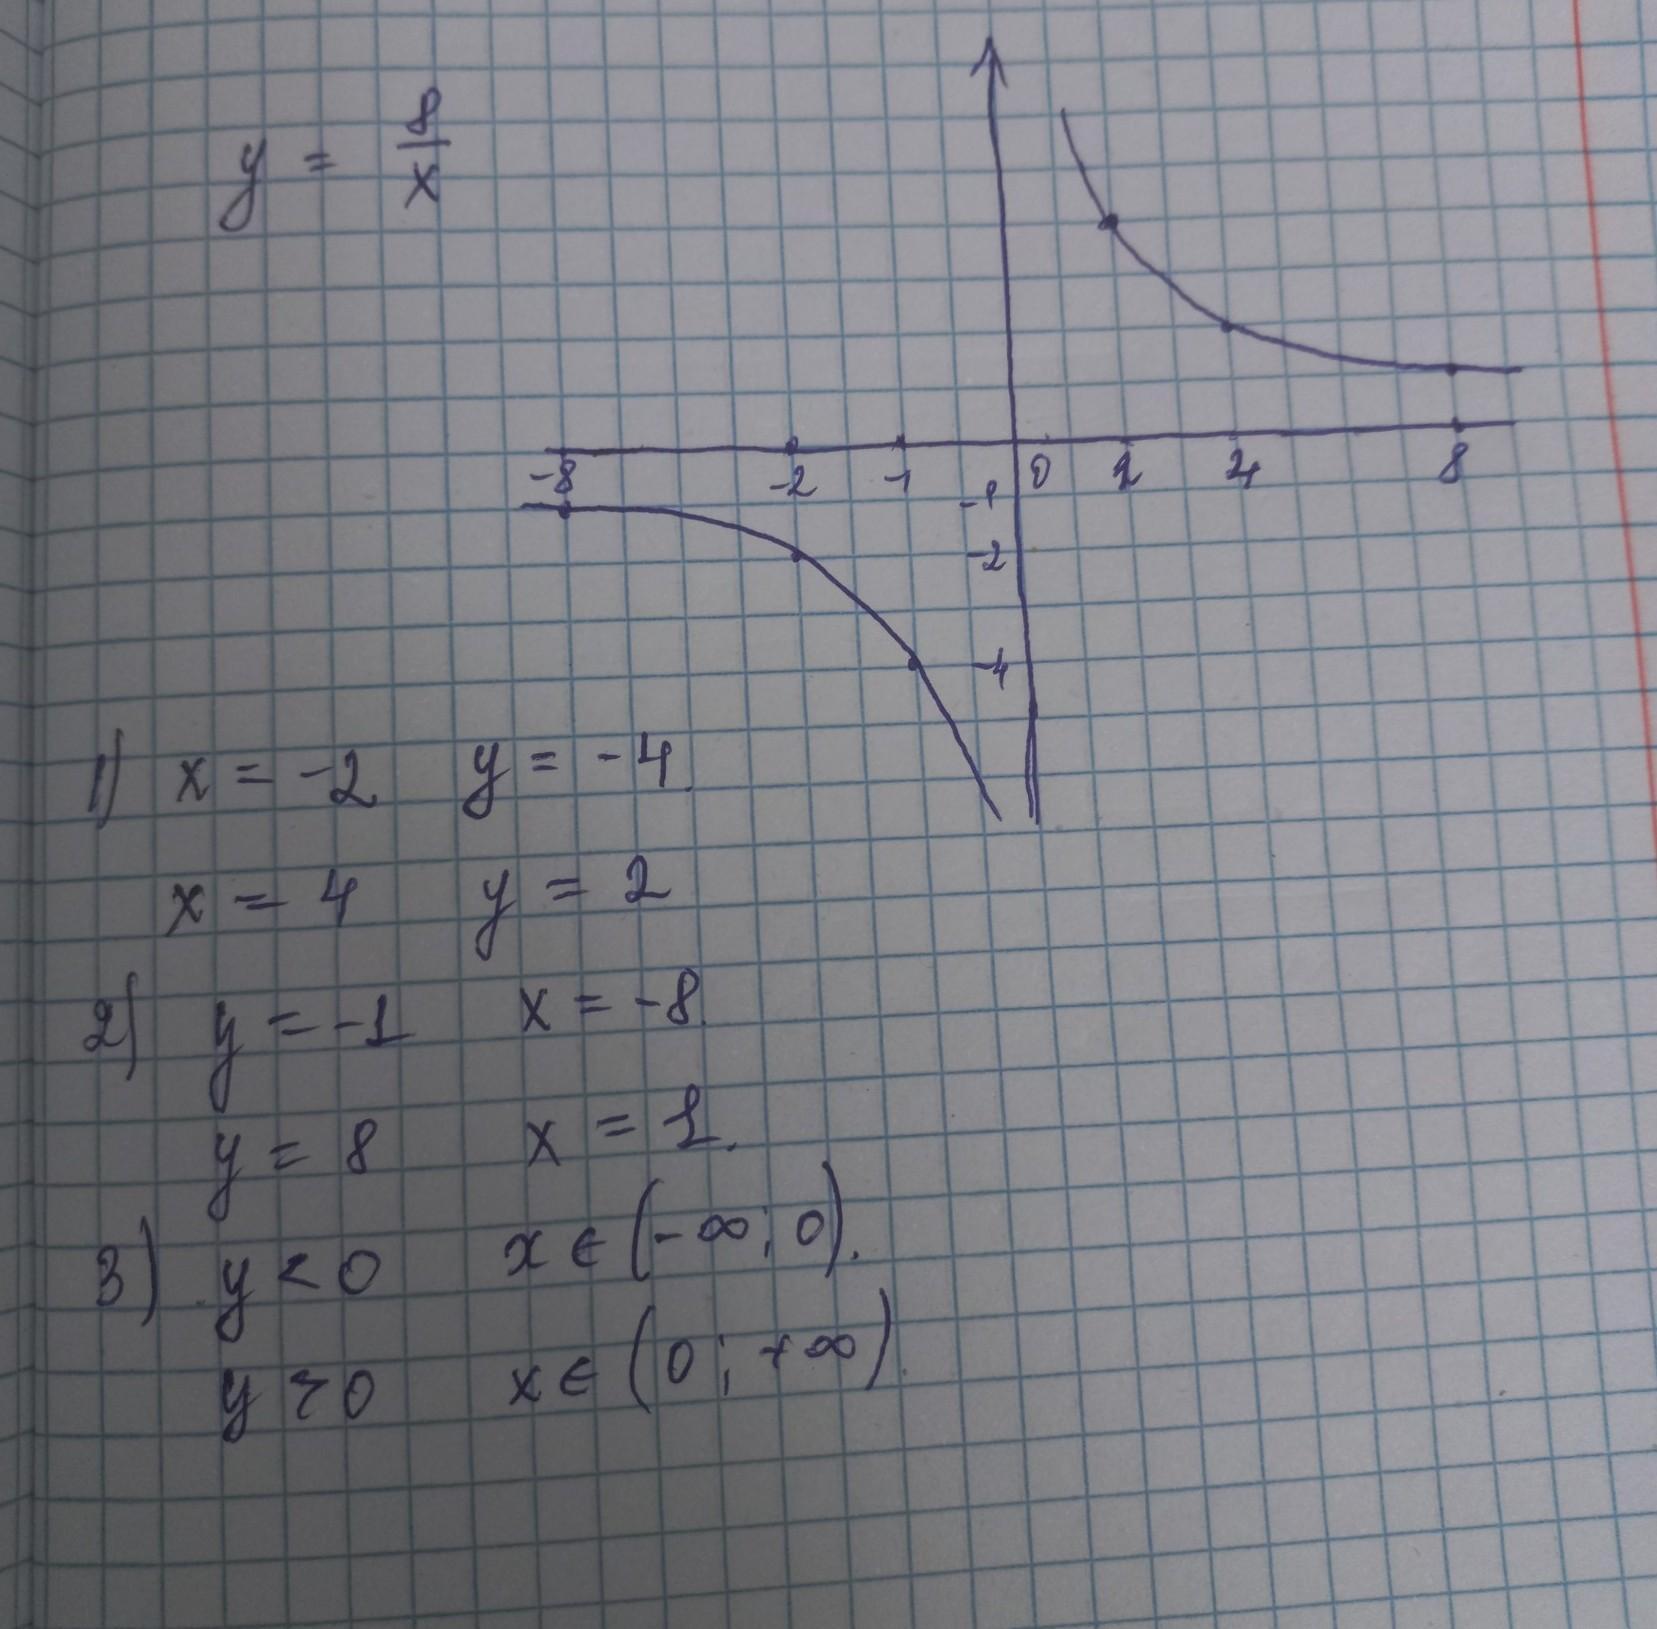 y = 8/x
-8 -2 -1 0 2 4 8
-1
-2
-4
1) x = -2 y = -4
x = 4 y = 2
2) y = -1 x = -8
y = 8 x = 1.
3) y < 0 x ∈ (-∞; 0).
y > 0 x ∈ (0; +∞).